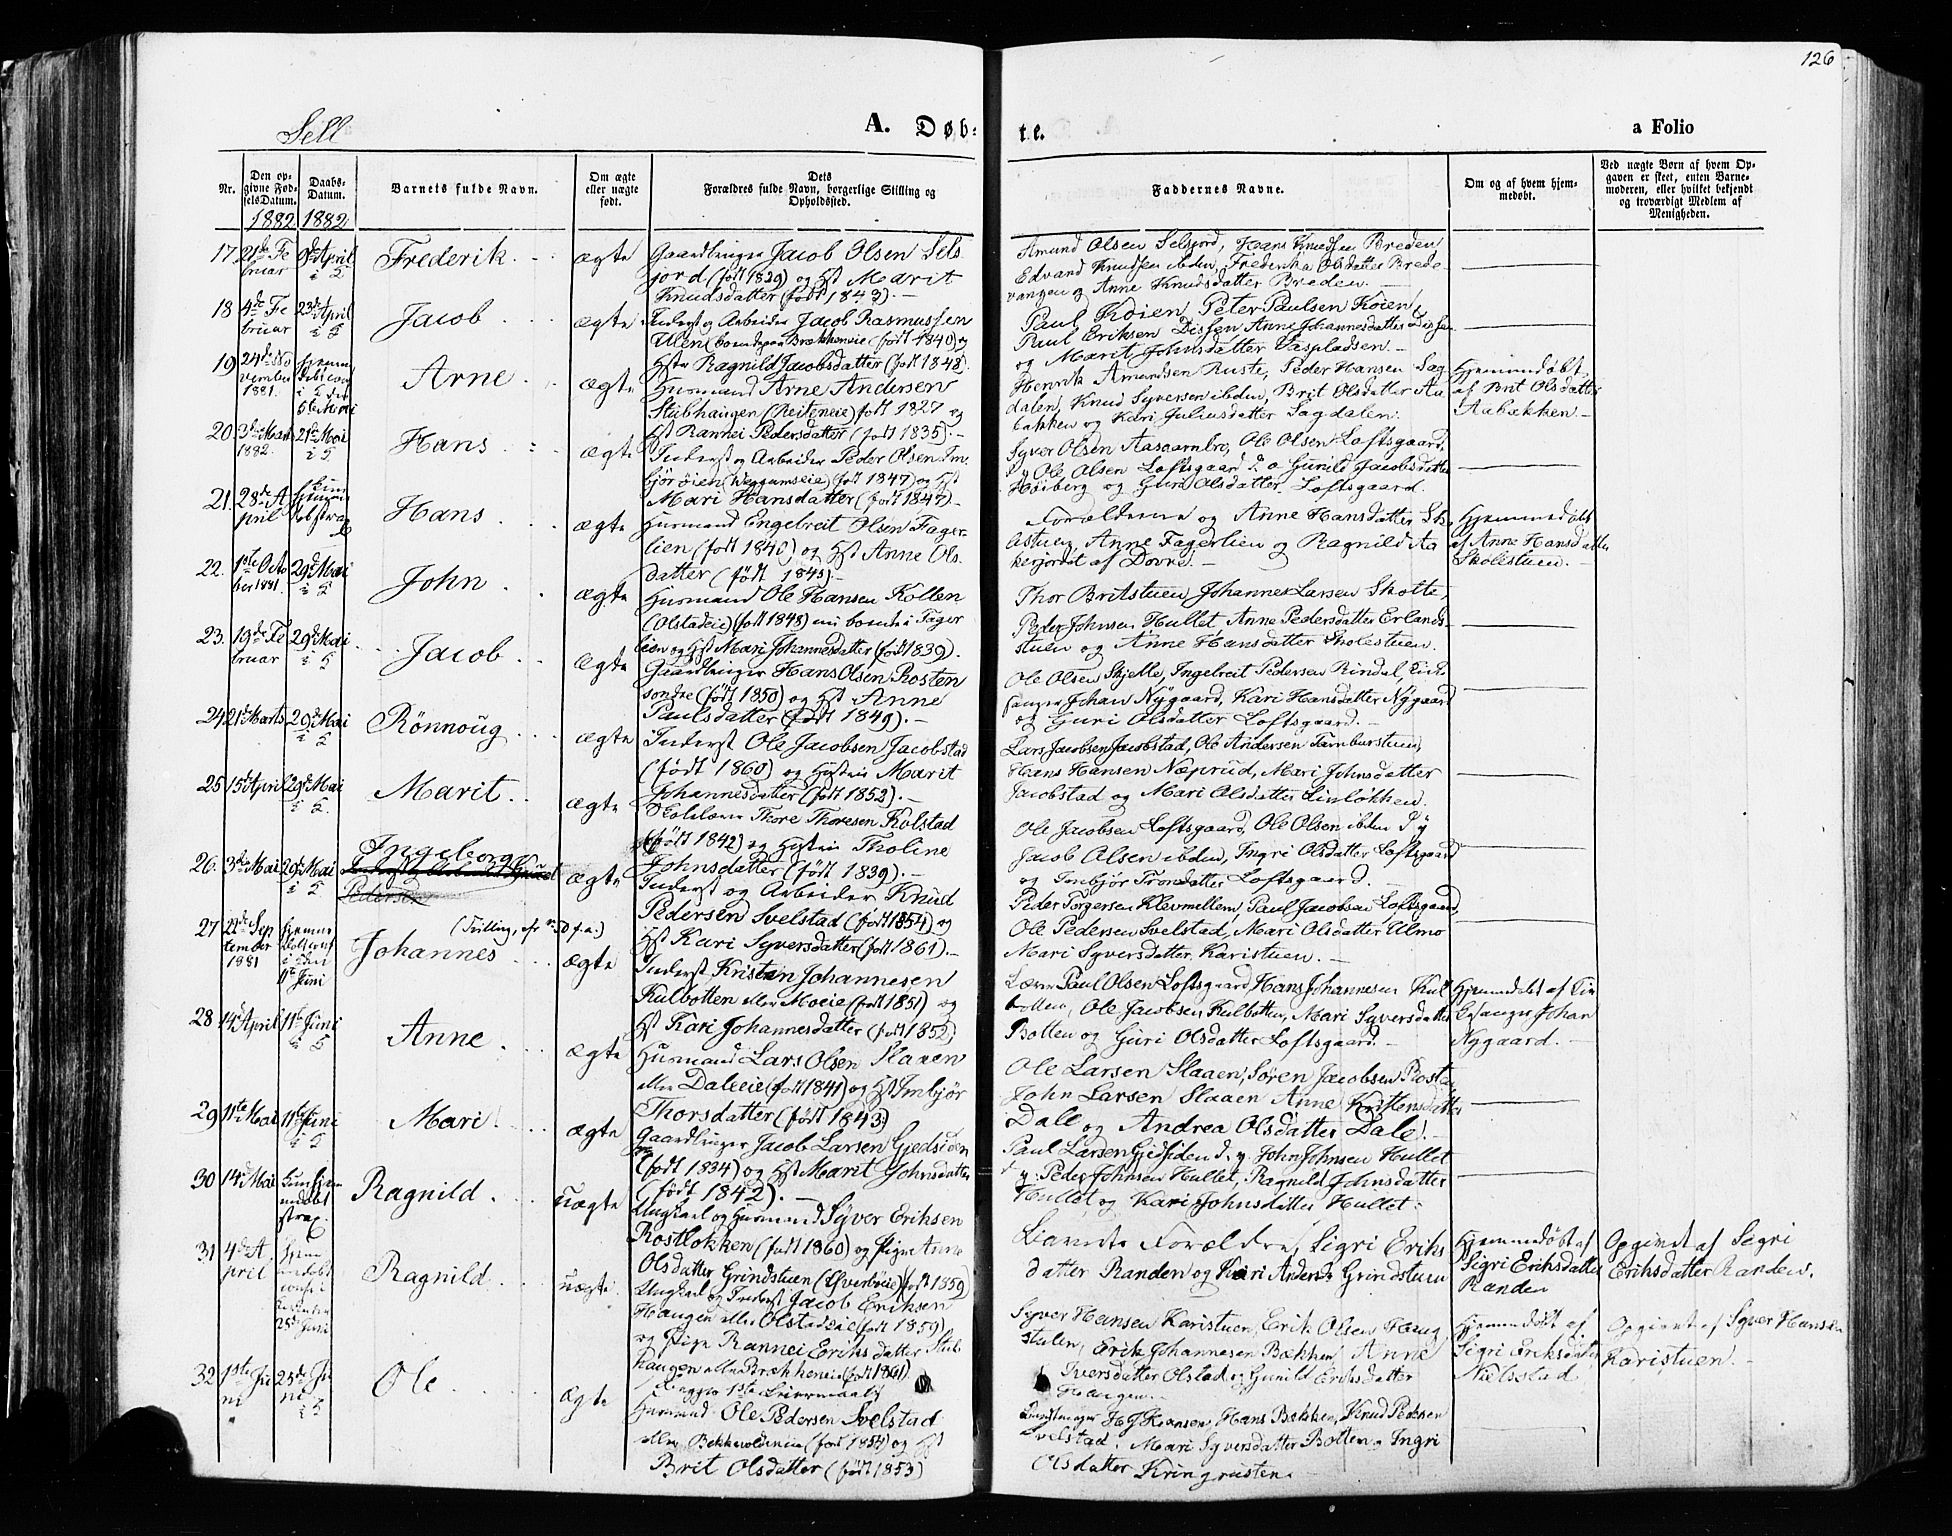 126
Sell
A. Døb-
te.
a Folio
Nr.
Den op-
givne Fød-
selsDatum.
Daabs-
Datum.
Barnets fulde Navn.
Om ægte
eller uægte
født.
Dets
Forældres fulde Navn, borgerlige Stilling og
Opholdssted.
Faddernes Navne.
Om og af hvem hjem-
medøbt.
Ved uægte Børn af hvem Op-
gaven er skeet, enten Barne-
moderen, eller hvilket bekjendt
og troværdigt Medlem af
Menigheden.
1882 1882
17 21de Fe
bruar
9de April
i K
Frederik
ægte
Gaardbruger Jacob Olsen Sels
jord (født 1839) og Hst Marit
Knudsdatter (født 1843).
Amund Olsen Selsjord, Hans Knudsen Breden
Edvard Knudsen ibden, Frederikke Olsdatter Brede-
vangen og Anne Knudsdatter Breden.
18 4de Fe
bruar
23de April
i K
Jacob
ægte
Inderst og Arbeider Jacob Rasmussen
Ulen (boende paa Brækkeneie (født 1840) og
Hstr Ragnild Jacobsdatter (født 1848.
Paul Koien, Peter Paulsen Koien,
Paul Eriksen Dissen Anne Johannesdatter Dissen
og Marit Johnsdatter Vaspladsen
19 24de No
vember
1881.
Arne
ægte
Husmand Arne Andersen
Stubhaugen (Reiteneie) født 1827 og
Hst Rannei Pedersdatter (født 1835).
Henrik Amundsen Ruste, Peder Hansen Sag
dalen, Knud Syversen ibden, Brit Olsdatter Aa
bakken og Kari Juliusdatter Sagdalen.
Hjemmedøbt
af Brit Olsdatter
Aabækken
20. 3de Marts
1882.
21de Mai
i K
Hans
ægte
Inderst og Arbeider Peder Olsen Im
(født 1847) og Hst
Mari Hansdatter (født 1847)
Syver Olsen Aasaarnbro, Ole Olsen Loftsgaard,
S. y Ole Olsen Loftsgaard S. o Gunild Jacobsdatter
Høiberg og Guri Olsdatter Loftsgaard.
21. 28de A
pril
Hans
ægte
Husmand Engebreit Olsen Fager-
lien (født 1840) og Hst Anne Ols
datter (født 1845).
Forældrene og Anne Hansdatter Sko
lestuen, Anne Fagerlien og Ragnild Aa
kerjordet af Dovre.
Hjemmedøbt
af Anne Hansdatter
Skolestuen.
22. 1ste Octo
ber 1881.
29de Mai
i K
John
ægte
Husmand Ole Hansen Kollen
(Olstadeie) (født 1848) nu boende i Fager
lien og Hst Mari Johannesdatter (født 1839).
Thor Britstuen, Johannes Larsen Skotte,
Peder Johnsen Hullet Anne Pedersdatter Erlands-
stuen og Anne Hansdatter Skolestuen.
23. 19de Fe
bruar
29de Mai
i K
Jacob
ægte
Gaardbruger Hans Olsen Rosten
søndre (født 1850) og Hst Anne
Paulsdatter (født 1849).
Ole Olsen Skjelle, Ingebreit Pedersen Rindal, Kirke
sanger Johan Nygaard, Kari Hansdatter Nygaard
og Guri Olsdatter Loftsgaard.
24 21de Marts
29de Mai
i K
Rönnoug
ægte
Inderst Ole Jacobsen Jacobstad
(født 1860) og Hustru Marit
Johannesdatter (født 1853).
Lars Jacobsen Jacobstad, Ole Andersen Tamburstuen,
Hans Hansen Næprud, Mari Johnsdatter
Jacobstad og Mari Olsdatter Linløkken.
25 15de April
29de Mai
i K
Marit
ægte
Skolelærer Thore Thoresen Kolstad
(født 1842) og Hustru Tholine
Johnsdatter (født 1839).
Ole Jacobsen Loftsgaard, Ole Olsen ibden S. y
Jacob Olsen ibden, Ingri Olsdatter Loftsgaard
og Imbjør Trondatter Loftsgaard.
26. 3de Mai
29de Mai
i K
Ingeborg
Inderst og Arbeider Knud
Pedersen
ægte
Inderst og Arbeider Knud
Pedersen Svelstad (født 1854) og
Hst Kari Syversdatter (født 1861).
Peder Torgersen Klevmellem, Paul Jacobsen Loftsgaard,
Ole Pedersen Svelstad, Mari Olsdatter Ulmo
Mari Syversdatter Karistuen.
27 22de Sep
tember
1881
11te Juni
(Tvilling, cfr no. 50 f. a.)
Johannes
ægte
Inderst Kristen Johannesen
Kulbotten eller Moeie (født 1851) og
Hst Kari Johannesdatter (født 1852)
Lærer Paul Olsen Loftsgaard, Hans Johannesen Kul
botten, Ole Jacobsen Kulbotten, Mari Syversdatter
Botten og Guri Olsdatter Loftsgaard.
Hjemmedøbt af Kir
kesanger Johan
Nygaard.
28 14de April
11te Juni
i K
Anne
ægte
Husmand Lars Olsen Slaaen
eller Daleeie (født 1841) og Hst Imbjør
Thorsdatter (født 1843)
Ole Larsen Slaaen, Søren Jacobsen Rosten,
John Larsen Slaaen Anne Kristensdatter
Dale og Andrea Olsdatter Dale.
29 11te Mai
11te Juni
i K
Mari
ægte
Gaardbruger Jacob Larsen Gjedsiden
(født 1834) og Hst Marit Johnsdatter
(født 1842).
Paul Larsen Gjedsiden S. y. John Johnsen Hullet
y. Peder Johnsen Hullet, Ragnild Johnsdatter
Hullet og Kari Johnsdatter Hullet.
30 14de Mai
Kun hjem
medøbt
strax.
Ragnild
uægte
Ungkarl og Husmand Syver Eriksen
Rostløkken (født 1860) og Pige Anne
Olsdatter Grindstuen (født 1859)
Barnets Forældre, Sigri Eriks
datter Randen og Kari Andersd Grindstuen
Hjemmedøbt af
Sigri Eriksdatter
Randen
Opgivet af Sigri
Eriksdatter Randen.
31 4de A
pril
25de Juni
Ragnild
uægte
Ungkarl og Inderst Jacob Eriksen
Haugen eller Olstadeie (født 1859)
og Pige Rannei Eriksdatter Stub
haugen eller Brækkeneie (født 1861)
Begges 1ste Leiermaal
Syver Hansen Karistuen, Erik Olsen Haug
stulen, Erik Johannesen Bækken, Anne
Iversdatter Olstad og Gunild Eriksdatter
Haugen.
Hjemmedøbt af
Sigri Eriksdatter
Nielsstad
Opgivet af Syver Hansen
Karistuen.
32 1ste Ju
ni
25de Ju
ni i K
Ole
ægte
Husmand Ole Pedersen Svelstad
eller Bekkevoldeneie (født 1854) og Hst
Brit Olsdatter (født 1853)
H J Hansen, Hans Bækken, Knud Pedersen
Svelstad, Mari Syversdatter Botten og Ingri
Olsdatter Kringrusten.